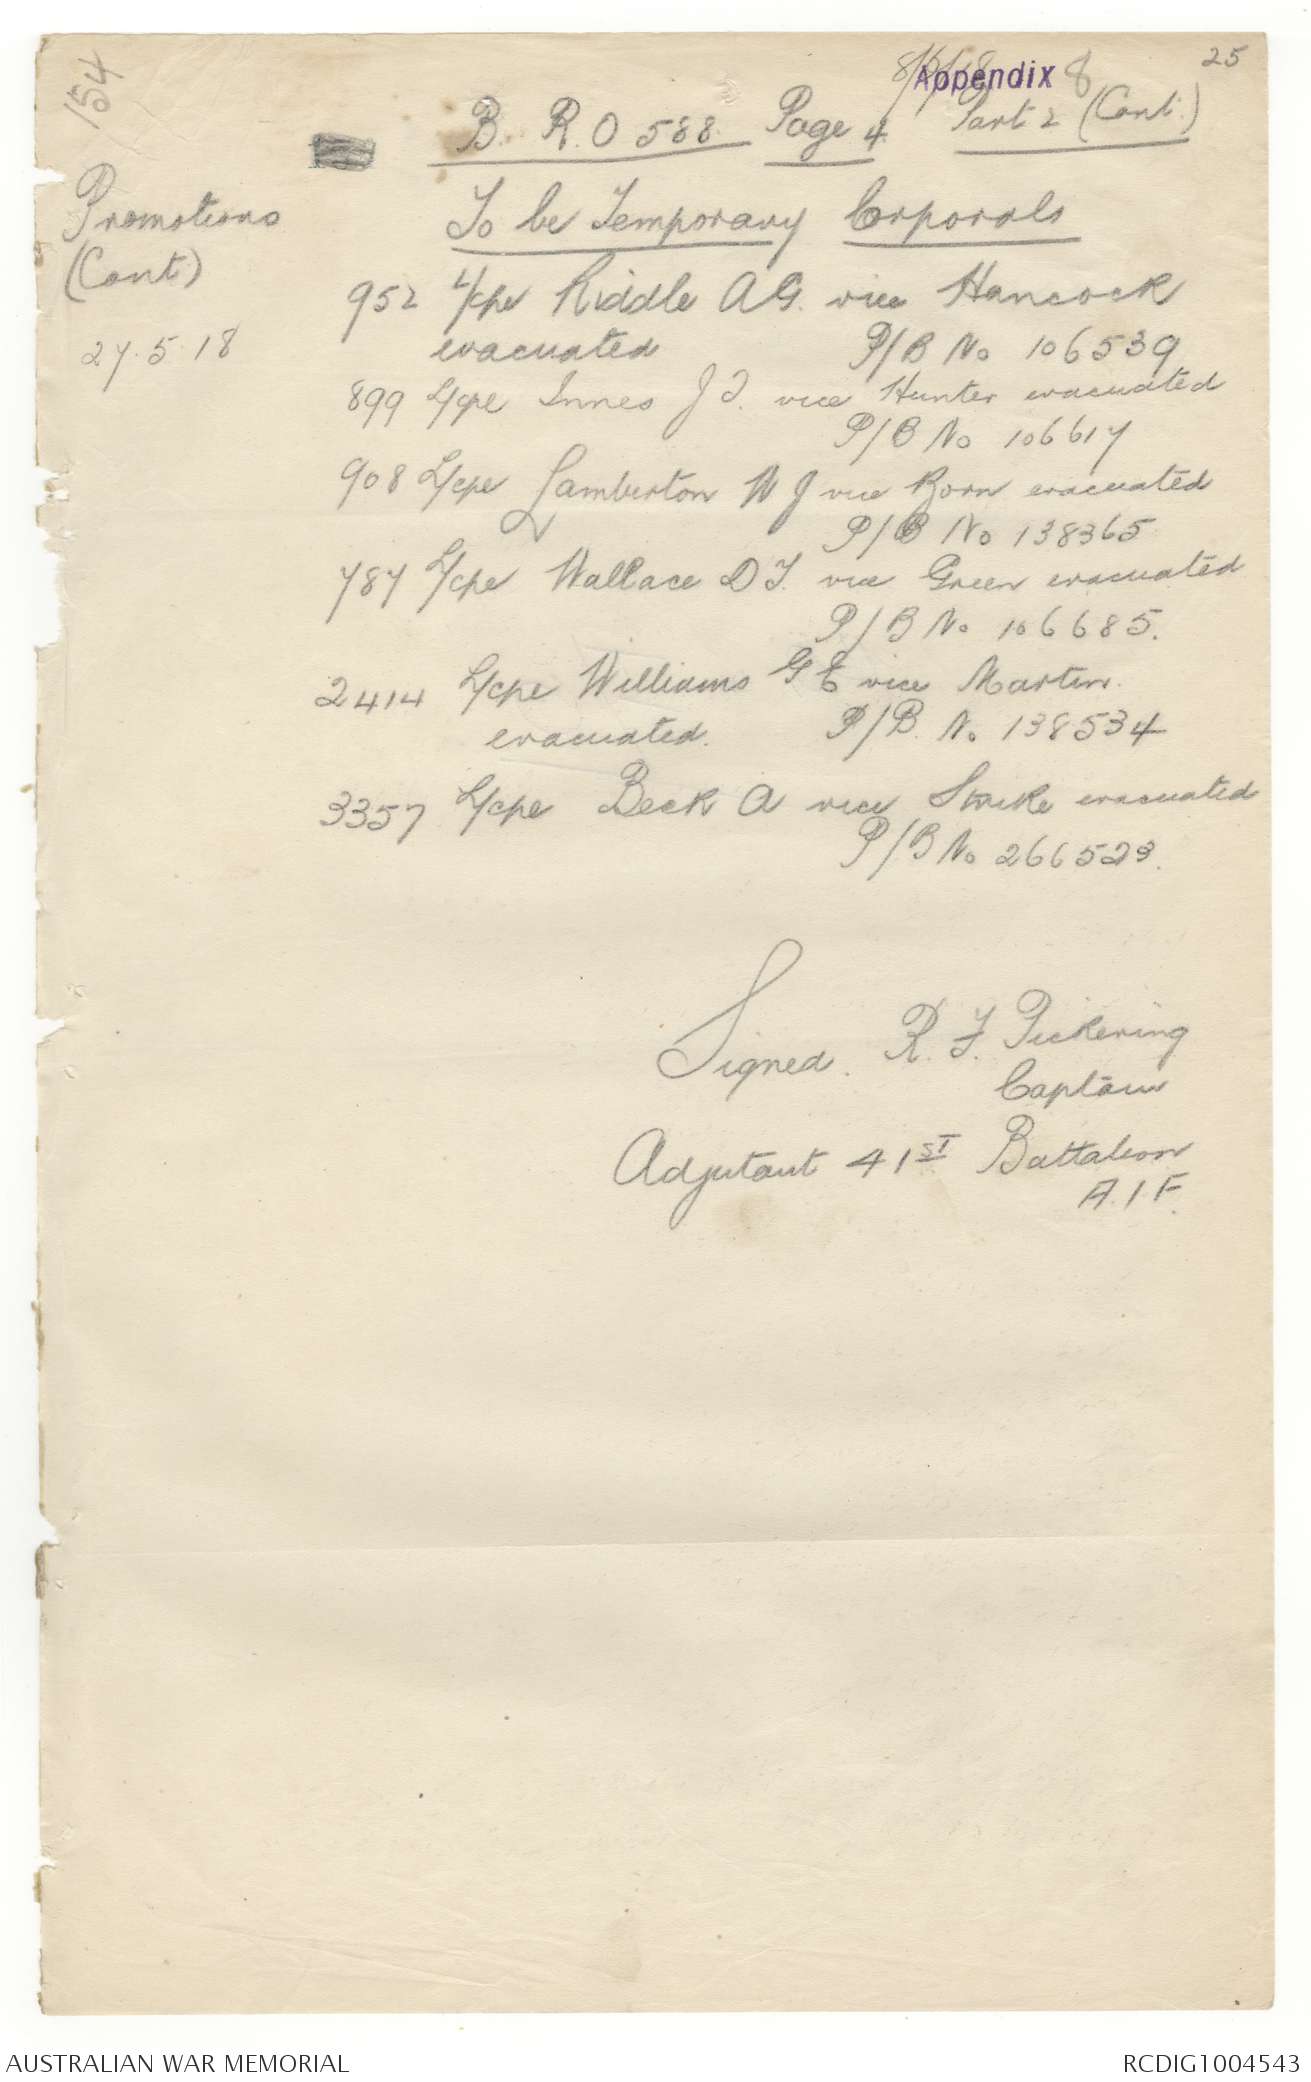 154
25
Appendix 8
B. R. O 588. Page 4 Part 2 (Cont.)
Promotions
(Cont)
27.5.18
To be Temporary Corporals
952 L/cpe Riddle A G. vice Hancock
evacuated P/B No 106539
899 L/cpe Innes J T. vice Hunter evacuated
P/B No 106617
908 L/cpe Lamberton W J vice Born evacuated
P/B No 138365
787 L/cpe Wallace D T. vice Green evacuated
P/B No 106685.
2414 L/cpe Williams G E vice Martin.
evacuated. P/B. No. 138534
3357 L/cpe Beck A vice evacuated
P/B No 266523.
Signed. R. F. Pickering
Captain
Adjutant 41ST Battalion
A.I.F.
AUSTRALIAN WAR MEMORIAL
RCDIG1004543